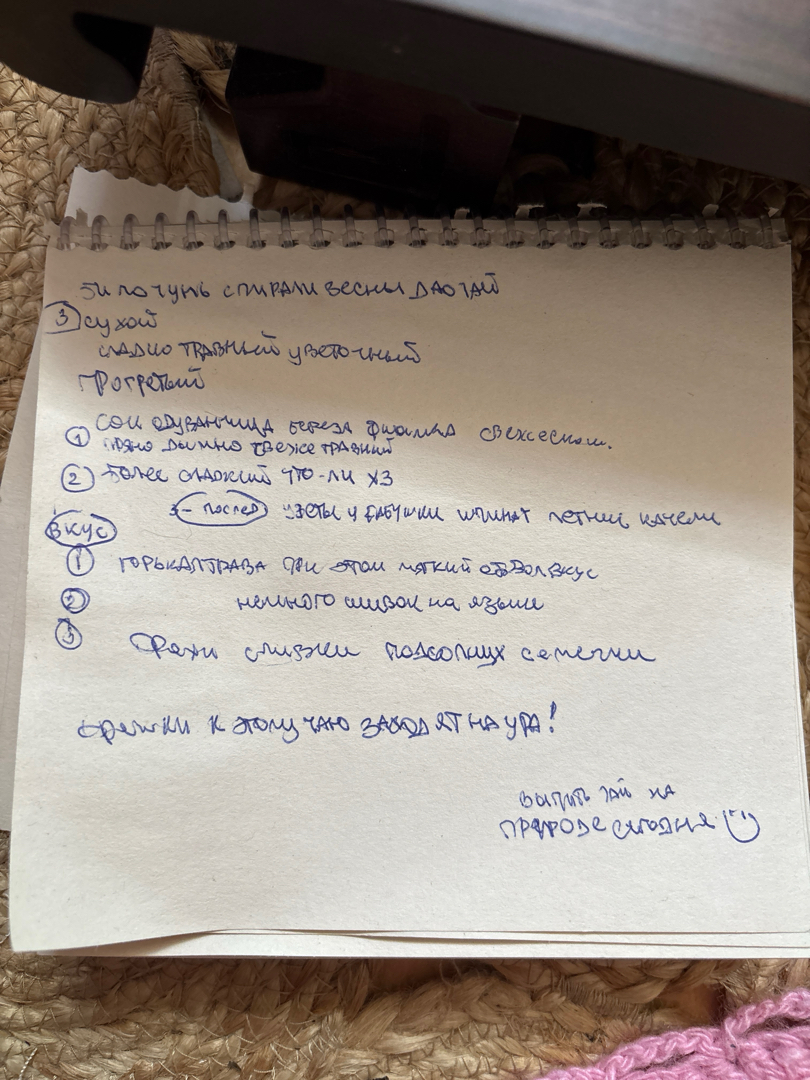 би ло чунь спирали весны даочай
З сухой
сладко травный цветочный
прогретый
① сок одуванчика береза фиалка
дымно свеже травний
② более сладкий что-ли хз
3 - послед цветы у бабушки шпинат летних качели
вкус
① горькая трава при этом мягкий обвол вкус
② немного сливок на языке
③ орехи сливки подсолнух семечки
орешки к этому чаю заходят на ура!
выпить чай на
природе сегодня